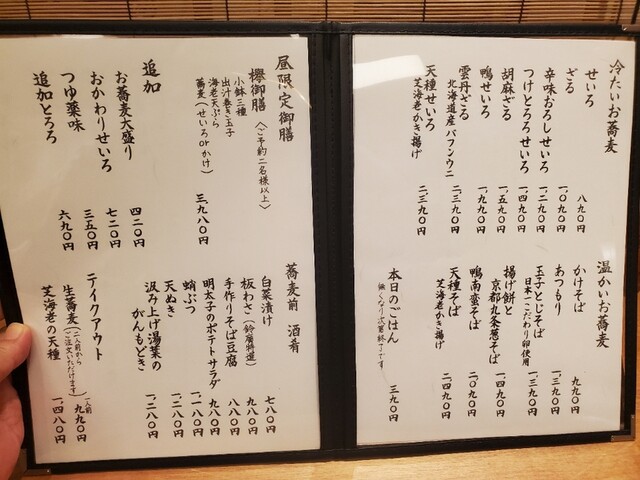 冷たいお蕎麦
せいろ 八九〇円
ざる 一、〇九〇円
辛味おろしせいろ 一、二九〇円
つけとろろせいろ 一、四九〇円
胡麻ざる 一、五九〇円
鴨せいろ 一、九九〇円
雲丹ざる 二、三九〇円
北海道産バフンウニ
天種せいろ 二、三九〇円
芝海老かき揚げ
温かいお蕎麦
かけそば 九九〇円
あつもり 一、一九〇円
玉子とじそば 一、三九〇円
日本一こだわり卵使用
揚げ餅と
京都九条葱そば 一、四九〇円
鴨南蛮そば 二、〇九〇円
天種そば 二、四九〇円
芝海老かき揚げ
本日のごはん 三九〇円
無くなり次第終了です
昼限定御膳
欅御膳 〈ご予約二名様以上〉
小鉢三種
出汁巻き玉子
海老天ぷら
蕎麦(せいろorかけ) 三、九八〇円
追加
お蕎麦大盛り 四二〇円
おかわりせいろ 七二〇円
つゆ薬味 三五〇円
追加とろろ 六九〇円
蕎麦前 酒肴
白菜漬け 七八〇円
板わさ(鈴廣特選) 八八〇円
手作りそば豆腐 八八〇円
明太子のポテトサラダ 九八〇円
蛸ぶつ 一、一八〇円
天ぬき 一、二八〇円
汲み上げ湯葉の
がんもどき 一、二八〇円
テイクアウト
生蕎麦(二人前からご注文いただけます) 一人前 九九〇円
芝海老の天種 一、四八〇円